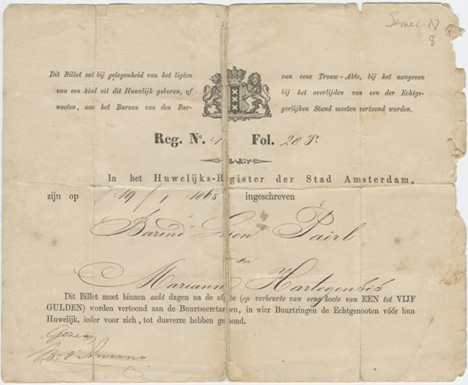 Dit Billet zal bij gelegenheid van het ligten van eene Trouw-Akte, bij het aangeven
van een kind uit dit Huwelijk geboren, of bij het overlijden van een der Echtge-
nooten, aan het Bureau van den Bur- gerlijken Stand moeten vertoond worden.
Reg. No. 1 Fol. 20
In het Huwelijks-Register der Stad Amsterdam,
zijn op 19/1 1865 ingeschreven
Barend Leon Pairl
en
Marianne Hartogensis
Dit Billet moet binnen acht dagen na de (op verbeurte van eene boete van EEN tot VIJF
GULDEN) worden vertoond aan de Buurtsecretarissen, in wier Buurtringen de Echtgenooten vóór hun
Huwelijk, ieder voor zich, tot dusverre hebben gewoond.
Gezien